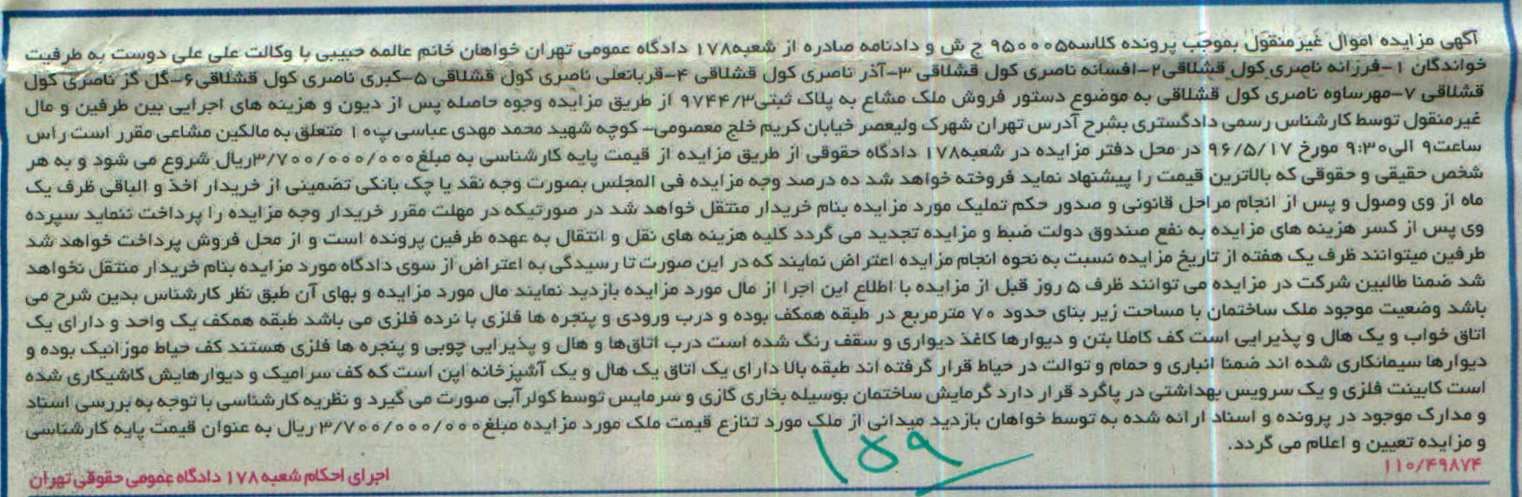 آگهی مزایده اموال غیرمنقول بموجب پرونده کلاسه۹۵۰۰۰۵ ج ش و دادنامه صادره از شعبه۱۷۸ دادگاه عمومی تهران خواهان خانم عالمه حبیبی با وکالت علی علی دوست به طرفیت
خواندگان ۱-فرزانه ناصری کول قشلاقی۲-افسانه ناصری کول قشلاقی ۳-آذر ناصری کول قشلاقی ۴-قربانعلی ناصری کول قشلاقی ۵-کبری ناصری کول قشلاقی۶-گل گز ناصری کول
قشلاقی ۷-مهرساوه ناصری کول قشلاقی به موضوع دستور فروش ملک مشاع به پلاک ثبتی۹۷۴۴/۳ از طریق مزایده وجوه حاصله پس از دیون و هزینه های اجرایی بین طرفین و مال
غیرمنقول توسط کارشناس رسمی دادگستری بشرح آدرس تهران شهرک ولیعصر خیابان کریم خلج معصومی- کوچه شهید محمد مهدی عباسی پ۱۰ متعلق به مالکین مشاعی مقرر است راس
ساعت۹ الی۹:۳۰ مورخ ۹۶/۵/۱۷ در محل دفتر مزایده در شعبه۱۷۸ دادگاه حقوقی از طریق مزایده از قیمت پایه کارشناسی به مبلغ۳/۷۰۰/۰۰۰/۰۰۰ریال شروع می شود و به هر
شخص حقیقی و حقوقی که بالاترین قیمت را پیشنهاد نماید فروخته خواهد شد ده درصد وجه مزایده فی المجلس بصورت وجه نقد یا چک بانکی تضمینی از خریدار اخذ و الباقی ظرف یک
ماه از وی وصول و پس از انجام مراحل قانونی و صدور حکم تملیک مورد مزایده بنام خریدار منتقل خواهد شد در صورتیکه در مهلت مقرر خریدار وجه مزایده را پرداخت ننماید سپرده
وی پس از کسر هزینه های مزایده به نفع صندوق دولت ضبط و مزایده تجدید می گردد کلیه هزینه های نقل و انتقال به عهده طرفین پرونده است و از محل فروش پرداخت خواهد شد
طرفین میتوانند ظرف یک هفته از تاریخ مزایده نسبت به نحوه انجام مزایده اعتراض نمایند که در این صورت تا رسیدگی به اعتراض از سوی دادگاه مورد مزایده بنام خریدار منتقل نخواهد
شد ضمنا طالبین شرکت در مزایده می توانند ظرف ۵ روز قبل از مزایده با اطلاع این اجرا از مال مورد مزایده بازدید نمایند مال مورد مزایده و بهای آن طبق نظر کارشناس بدین شرح می
باشد وضعیت موجود ملک ساختمان با مساحت زیر بنای حدود ۷۰ مترمربع در طبقه همکف بوده و درب ورودی و پنجره ها فلزی با نرده فلزی می باشد طبقه همکف یک واحد و دارای یک
اتاق خواب و یک هال و پذیرایی است کف کاملا بتن و دیوارها کاغذ دیواری و سقف رنگ شده است درب اتاق‌ها و هال و پذیرایی چوبی و پنجره ها فلزی هستند کف حیاط موزانیک بوده و
دیوارها سیمانکاری شده اند ضمنا انباری و حمام و توالت در حیاط قرار گرفته اند طبقه بالا دارای یک اتاق یک هال و یک آشپزخانه اپن است که کف سرامیک و دیوارهایش کاشیکاری شده
است کابینت فلزی و یک سرویس بهداشتی در پاگرد قرار دارد گرمایش ساختمان بوسیله بخاری گازی و سرمایس توسط کولرآبی صورت می گیرد و نظریه کارشناسی با توجه به بررسی اسناد
و مدارک موجود در پرونده و اسناد ارائه شده به توسط خواهان بازدید میدانی از ملک مورد تنازع قیمت ملک مورد مزایده مبلغ۳/۷۰۰/۰۰۰/۰۰۰ ریال به عنوان قیمت پایه کارشناسی
و مزایده تعیین و اعلام می گردد.
۱۵۹
۱۱۰/۴۹۸۷۴
اجرای احکام شعبه ۱۷۸ دادگاه عمومی حقوقی تهران